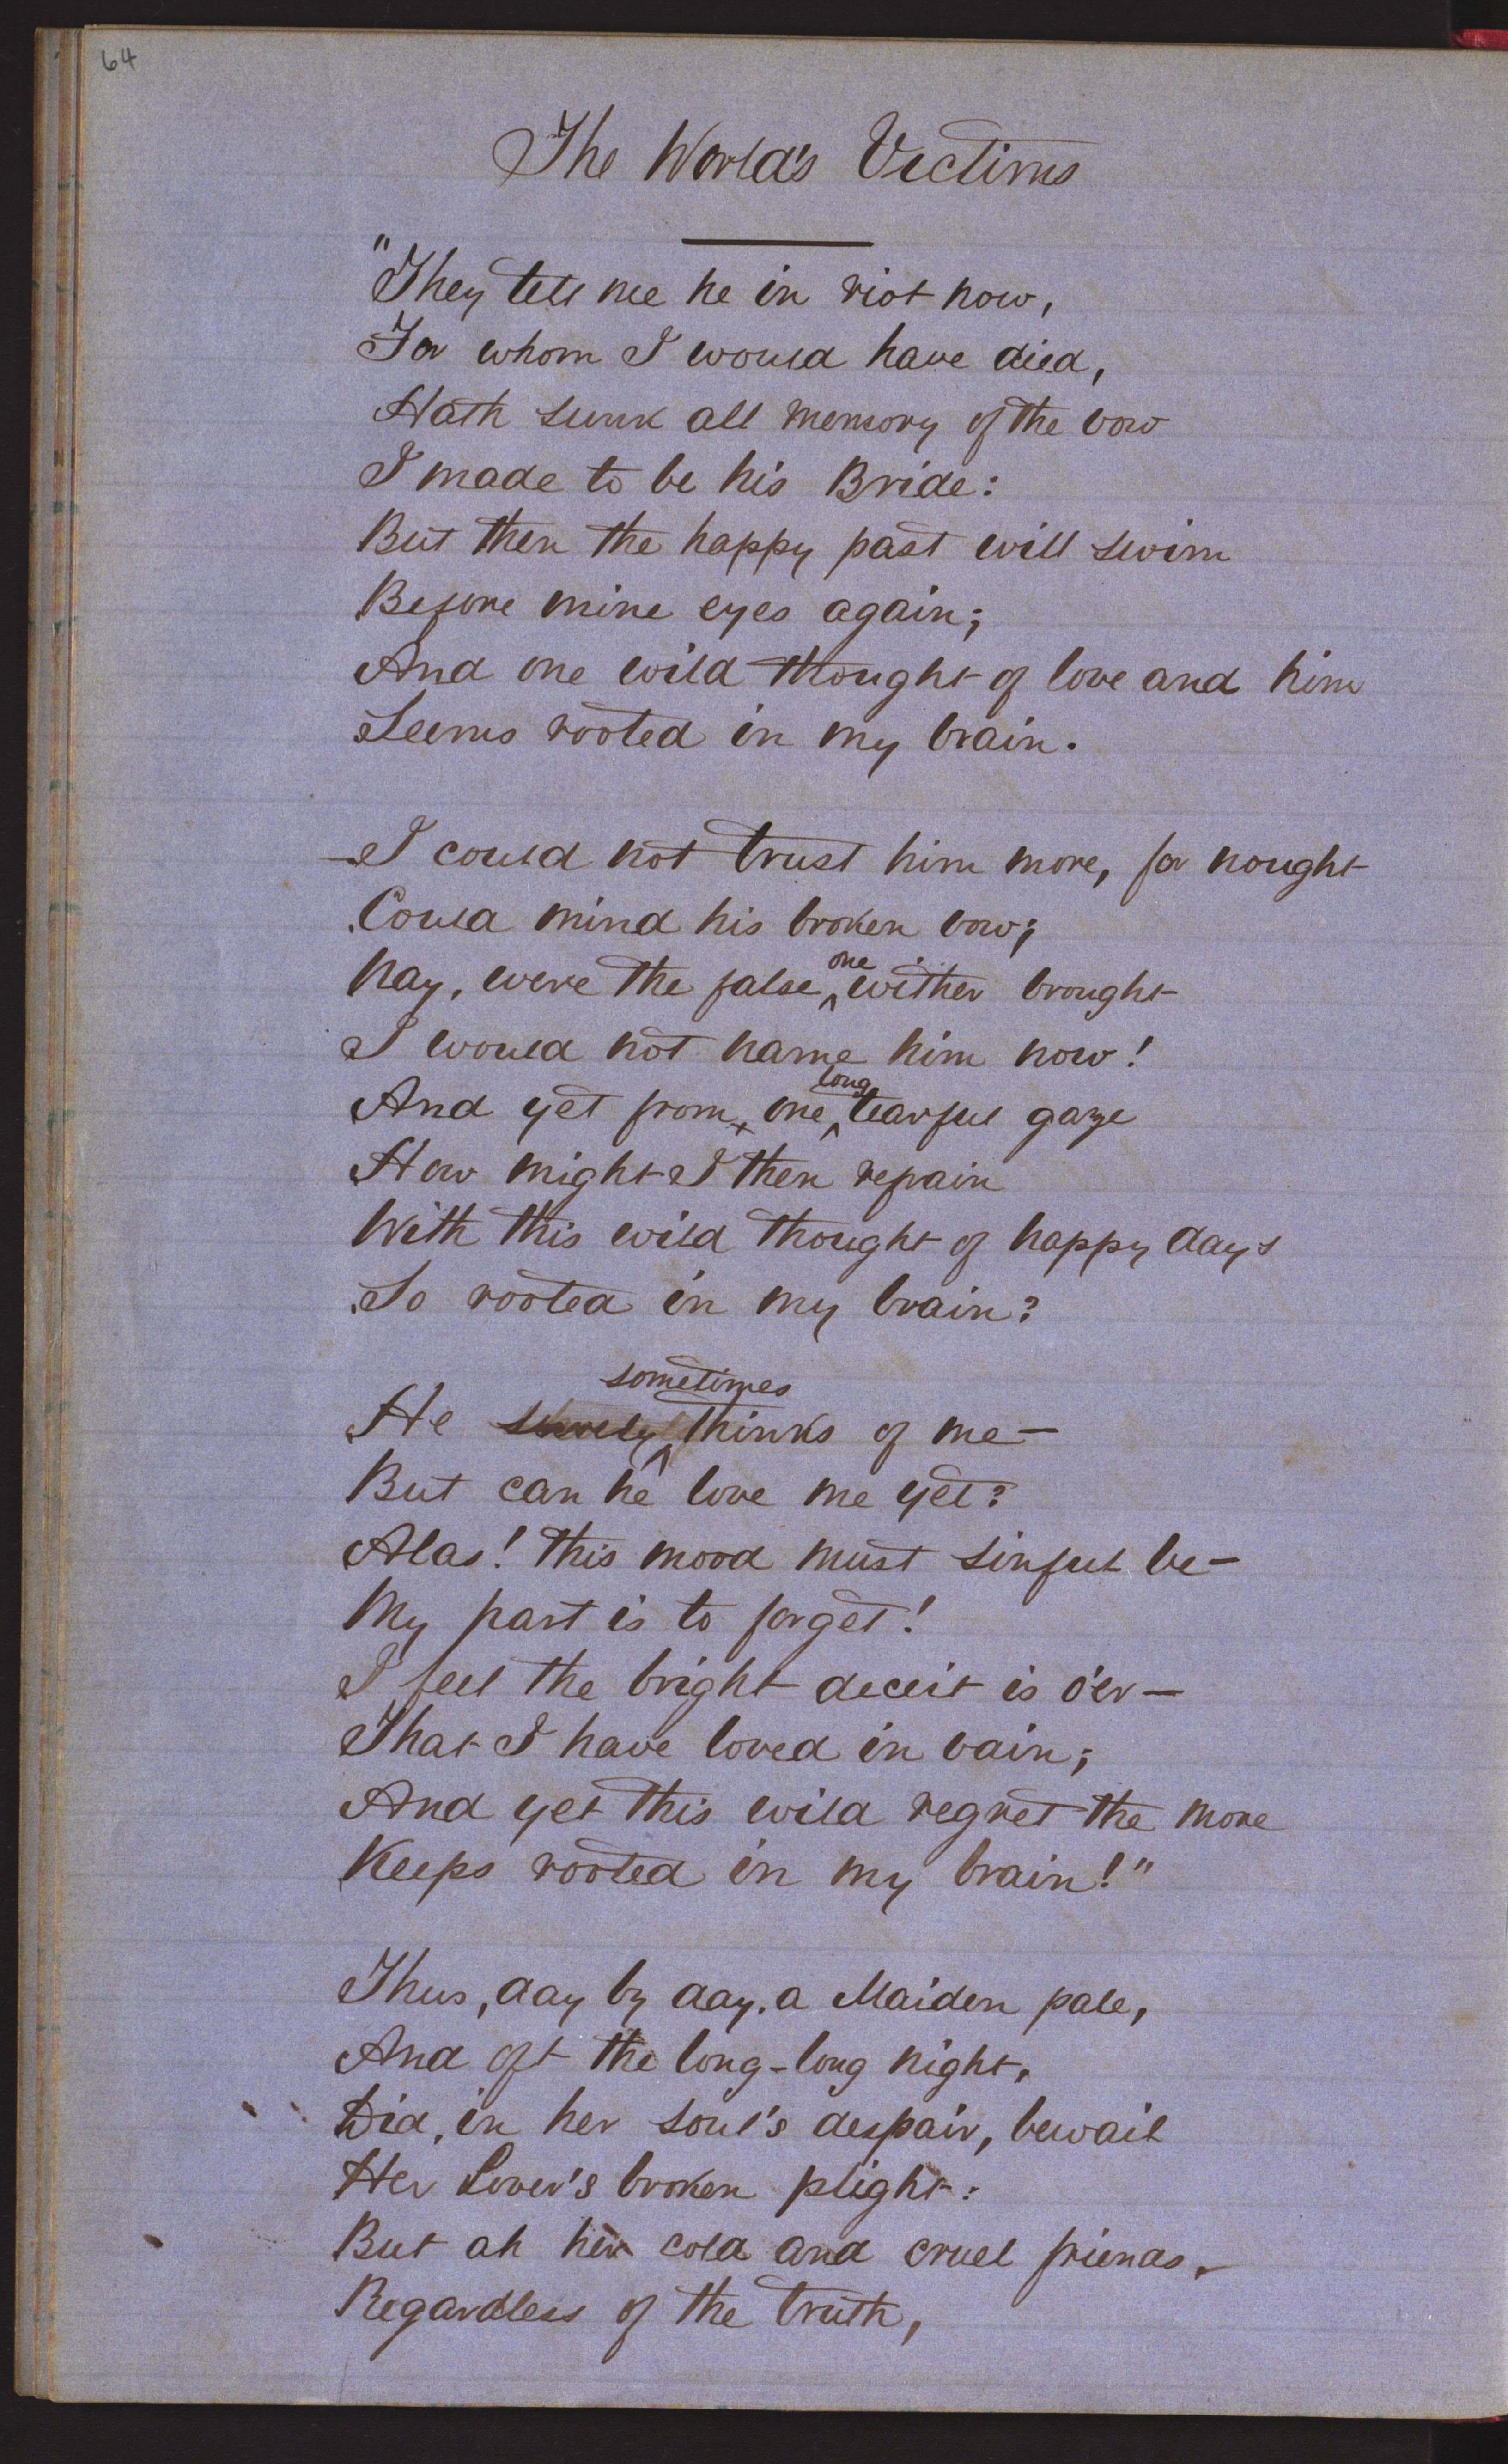 64
The World's Victims
"They tell me he in riot now,
For whom I would have died,
Hath sunk all memory of the vow
I made to be his Bride:
But then the happy past will swim
Before mine eyes again;
And one wild thought of love and him
Seems rooted in my brain.
I could not trust him more, for nought
Could mind his broken vow;
Nay, were the false one wither brought
I would not name him now!
And yet from one long tearful gaze
How might I then refrain
With this wild thought of happy days
So rooted in my brain?
He surely sometimes thinks of me—
But can he love me yet?
Alas! this mood must sinful be—
My part is to forget!
I feel the bright deceit is o'er—
That I have loved in vain;
And yet this wild regret the more
Keeps rooted in my brain!"
Thus, day by day, a Maiden pale,
And oft the long-long night,
Did, in her soul's despair, bewail
Her Lover's broken plight:
But ah her cold and cruel friends,
Regardless of the truth,